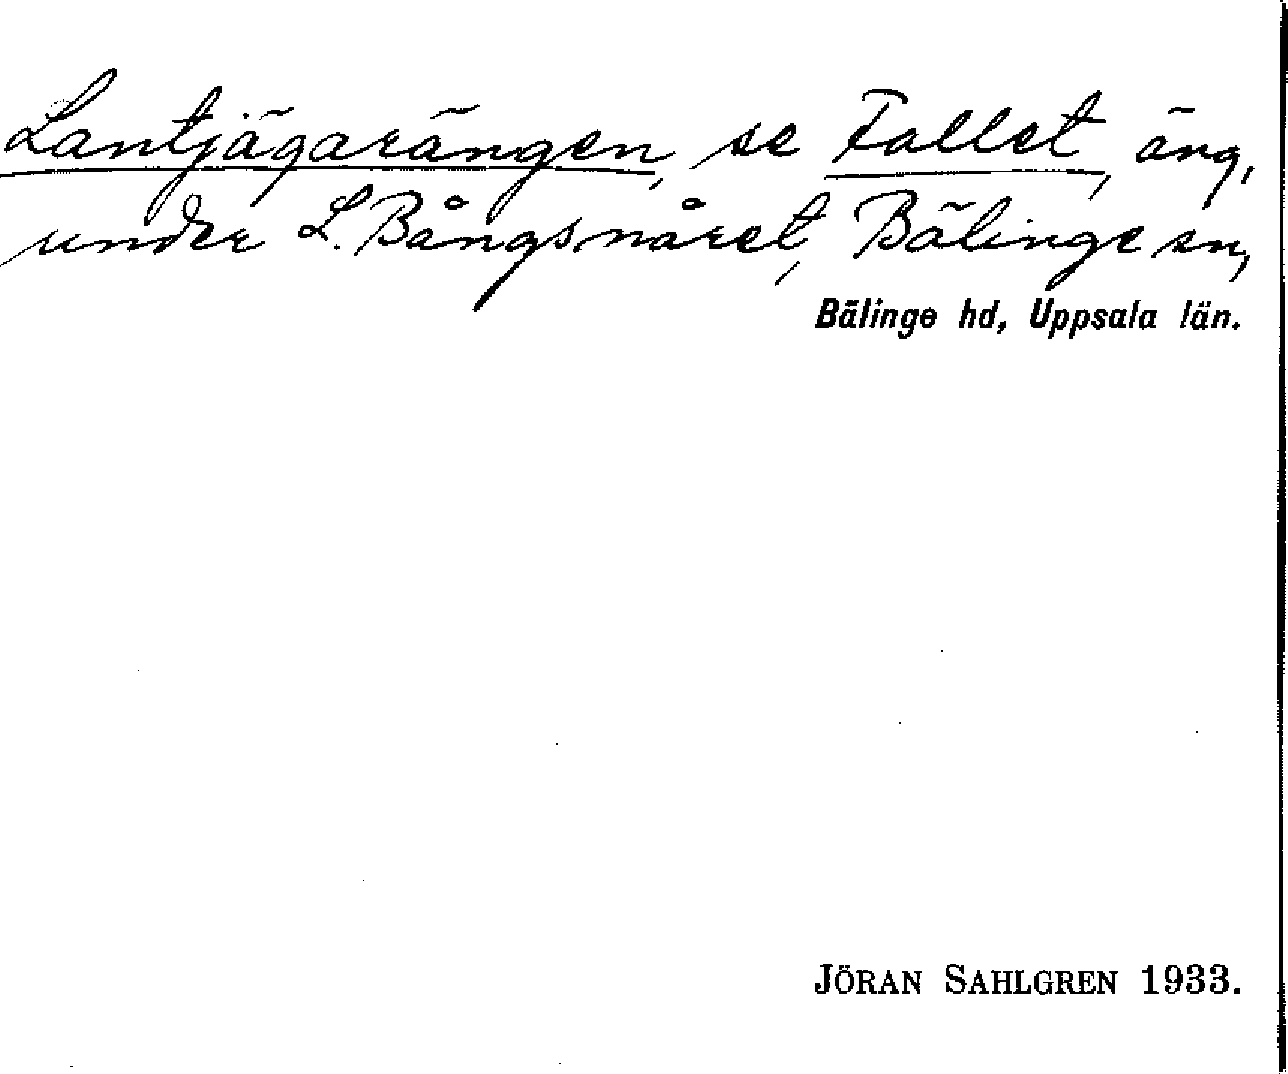 Lantjägarängen, se Fallet, äng,
under L. Bångsnåret, Bälinge sn,
Bälinge hd, Uppsala län.
JÖRAN SAHLGREN 1933.